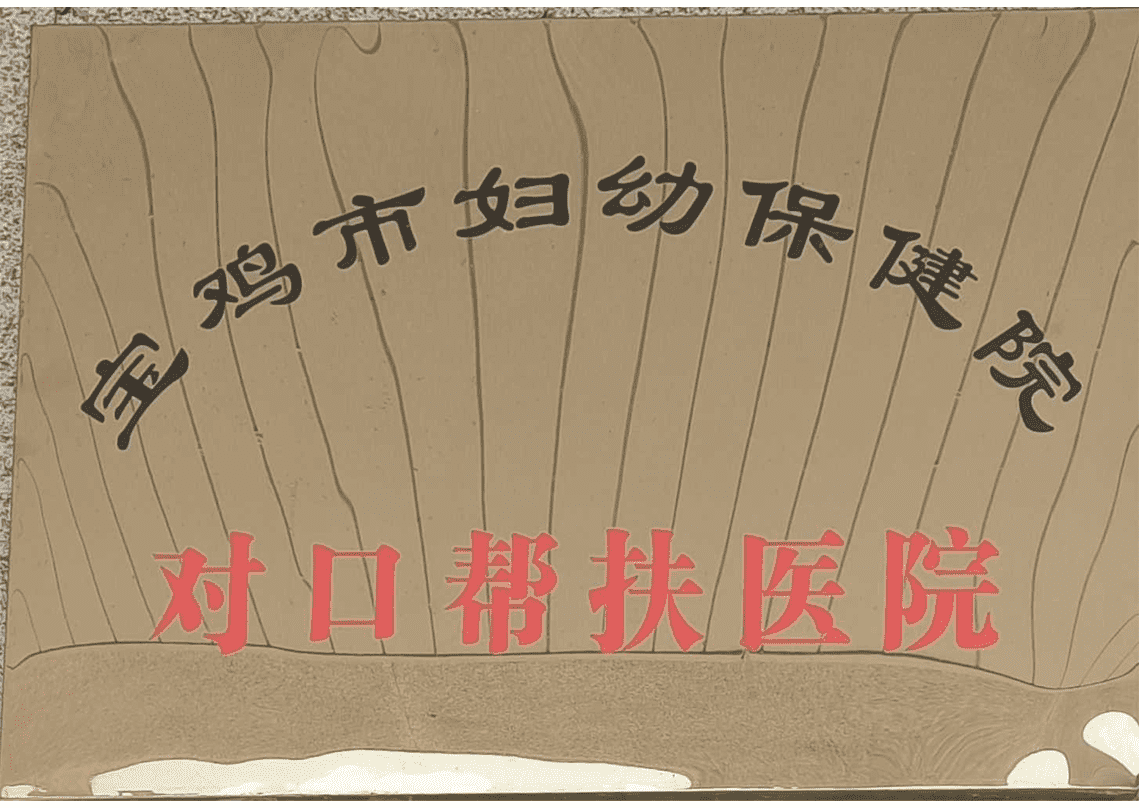 宝鸡市妇幼保健院
对口帮扶医院